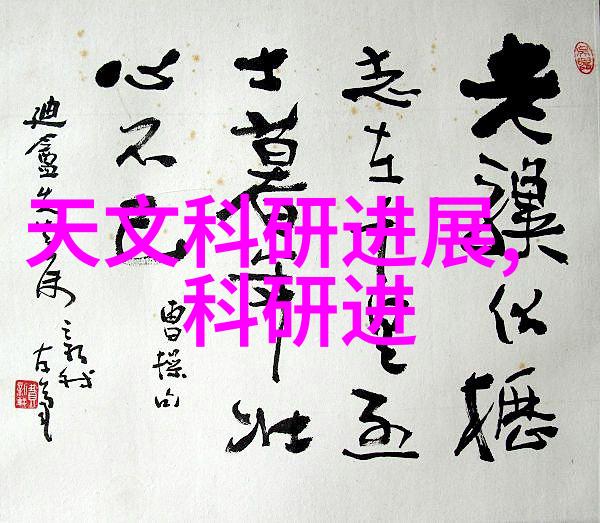 天文科研进展,
科研进
老骥伏櫪
志在千里烈
士暮年壮
心不已
曹操句
迪盦
左笔